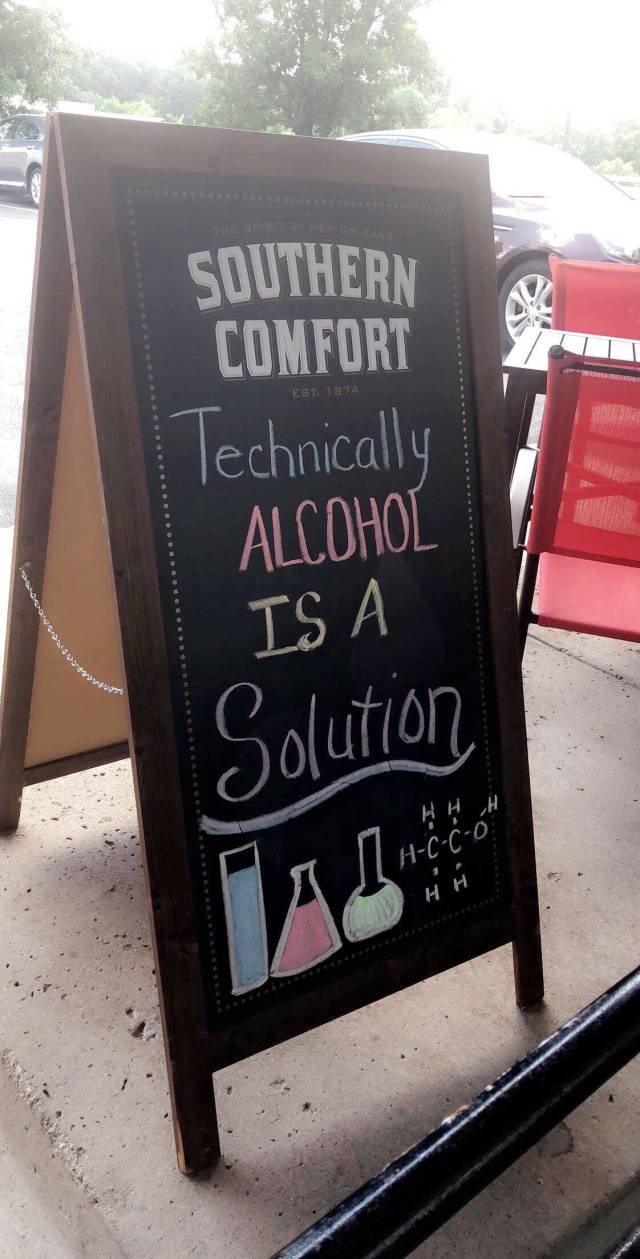 THE SPIRIT OF NEW ORLEANS
SOUTHERN
COMFORT
EST. 1874
Technically
ALCOHOL
IS A
Solution
H H H
H-C-C-O
H H